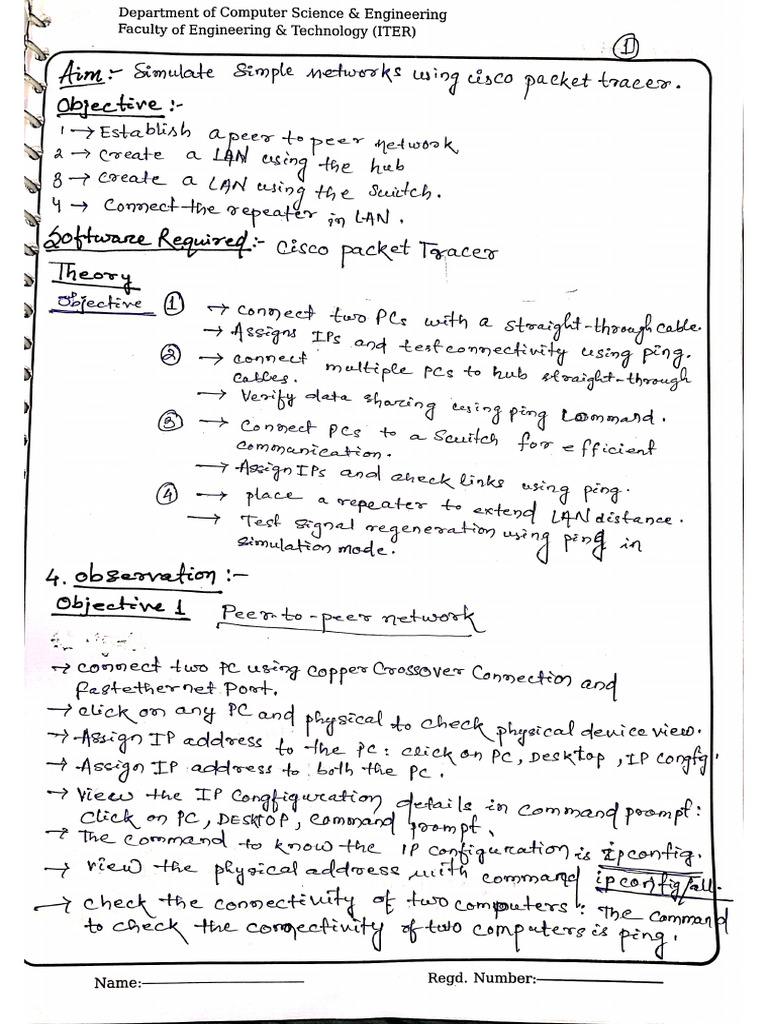 Department of Computer Science & Engineering
Faculty of Engineering & Technology (ITER)
1
Aim:- Simulate Simple networks using cisco packet tracer.
Objective:-
1 → Establish a peer to peer network
2 → create a LAN using the hub
3 → create a LAN using the Switch.
4 → Connect the repeater in LAN.
Software Required:- Cisco packet Tracer
Theory
Objective 1 → connect two PCs with a straight-through cable.
→ Assigns IPs and test connectivity using ping.
2 → connect multiple PCs to hub straight-through
cables.
→ Verify data sharing using ping Command.
3 → Connect PCs to a Scuitch for efficient
communication.
→ Assign IPs and check links using ping.
4 → place a repeater to extend LAN distance.
→ Test signal regeneration using ping in
simulation mode.
4. observation:-
Objective 1 Peer-to-peer network
→ connect two PC using Copper Crossover Connection and
fastethernet Port.
→ click on any PC and physical to check physical device view.
→ Assign IP address to the PC: click on PC, Desktop, IP congfg.
→ Assign IP address to both the PC.
→ View the IP Congfiguration details in command prompt:
Click on PC, DESKTOP, Command prompt.
→ The command to know the IP configuration is ipconfig.
→ view the physical address with command ipconfig/all.
→ check the connectivity of two computers: The command
to check the connectivity of two computers is ping.
Name:
Regd. Number: